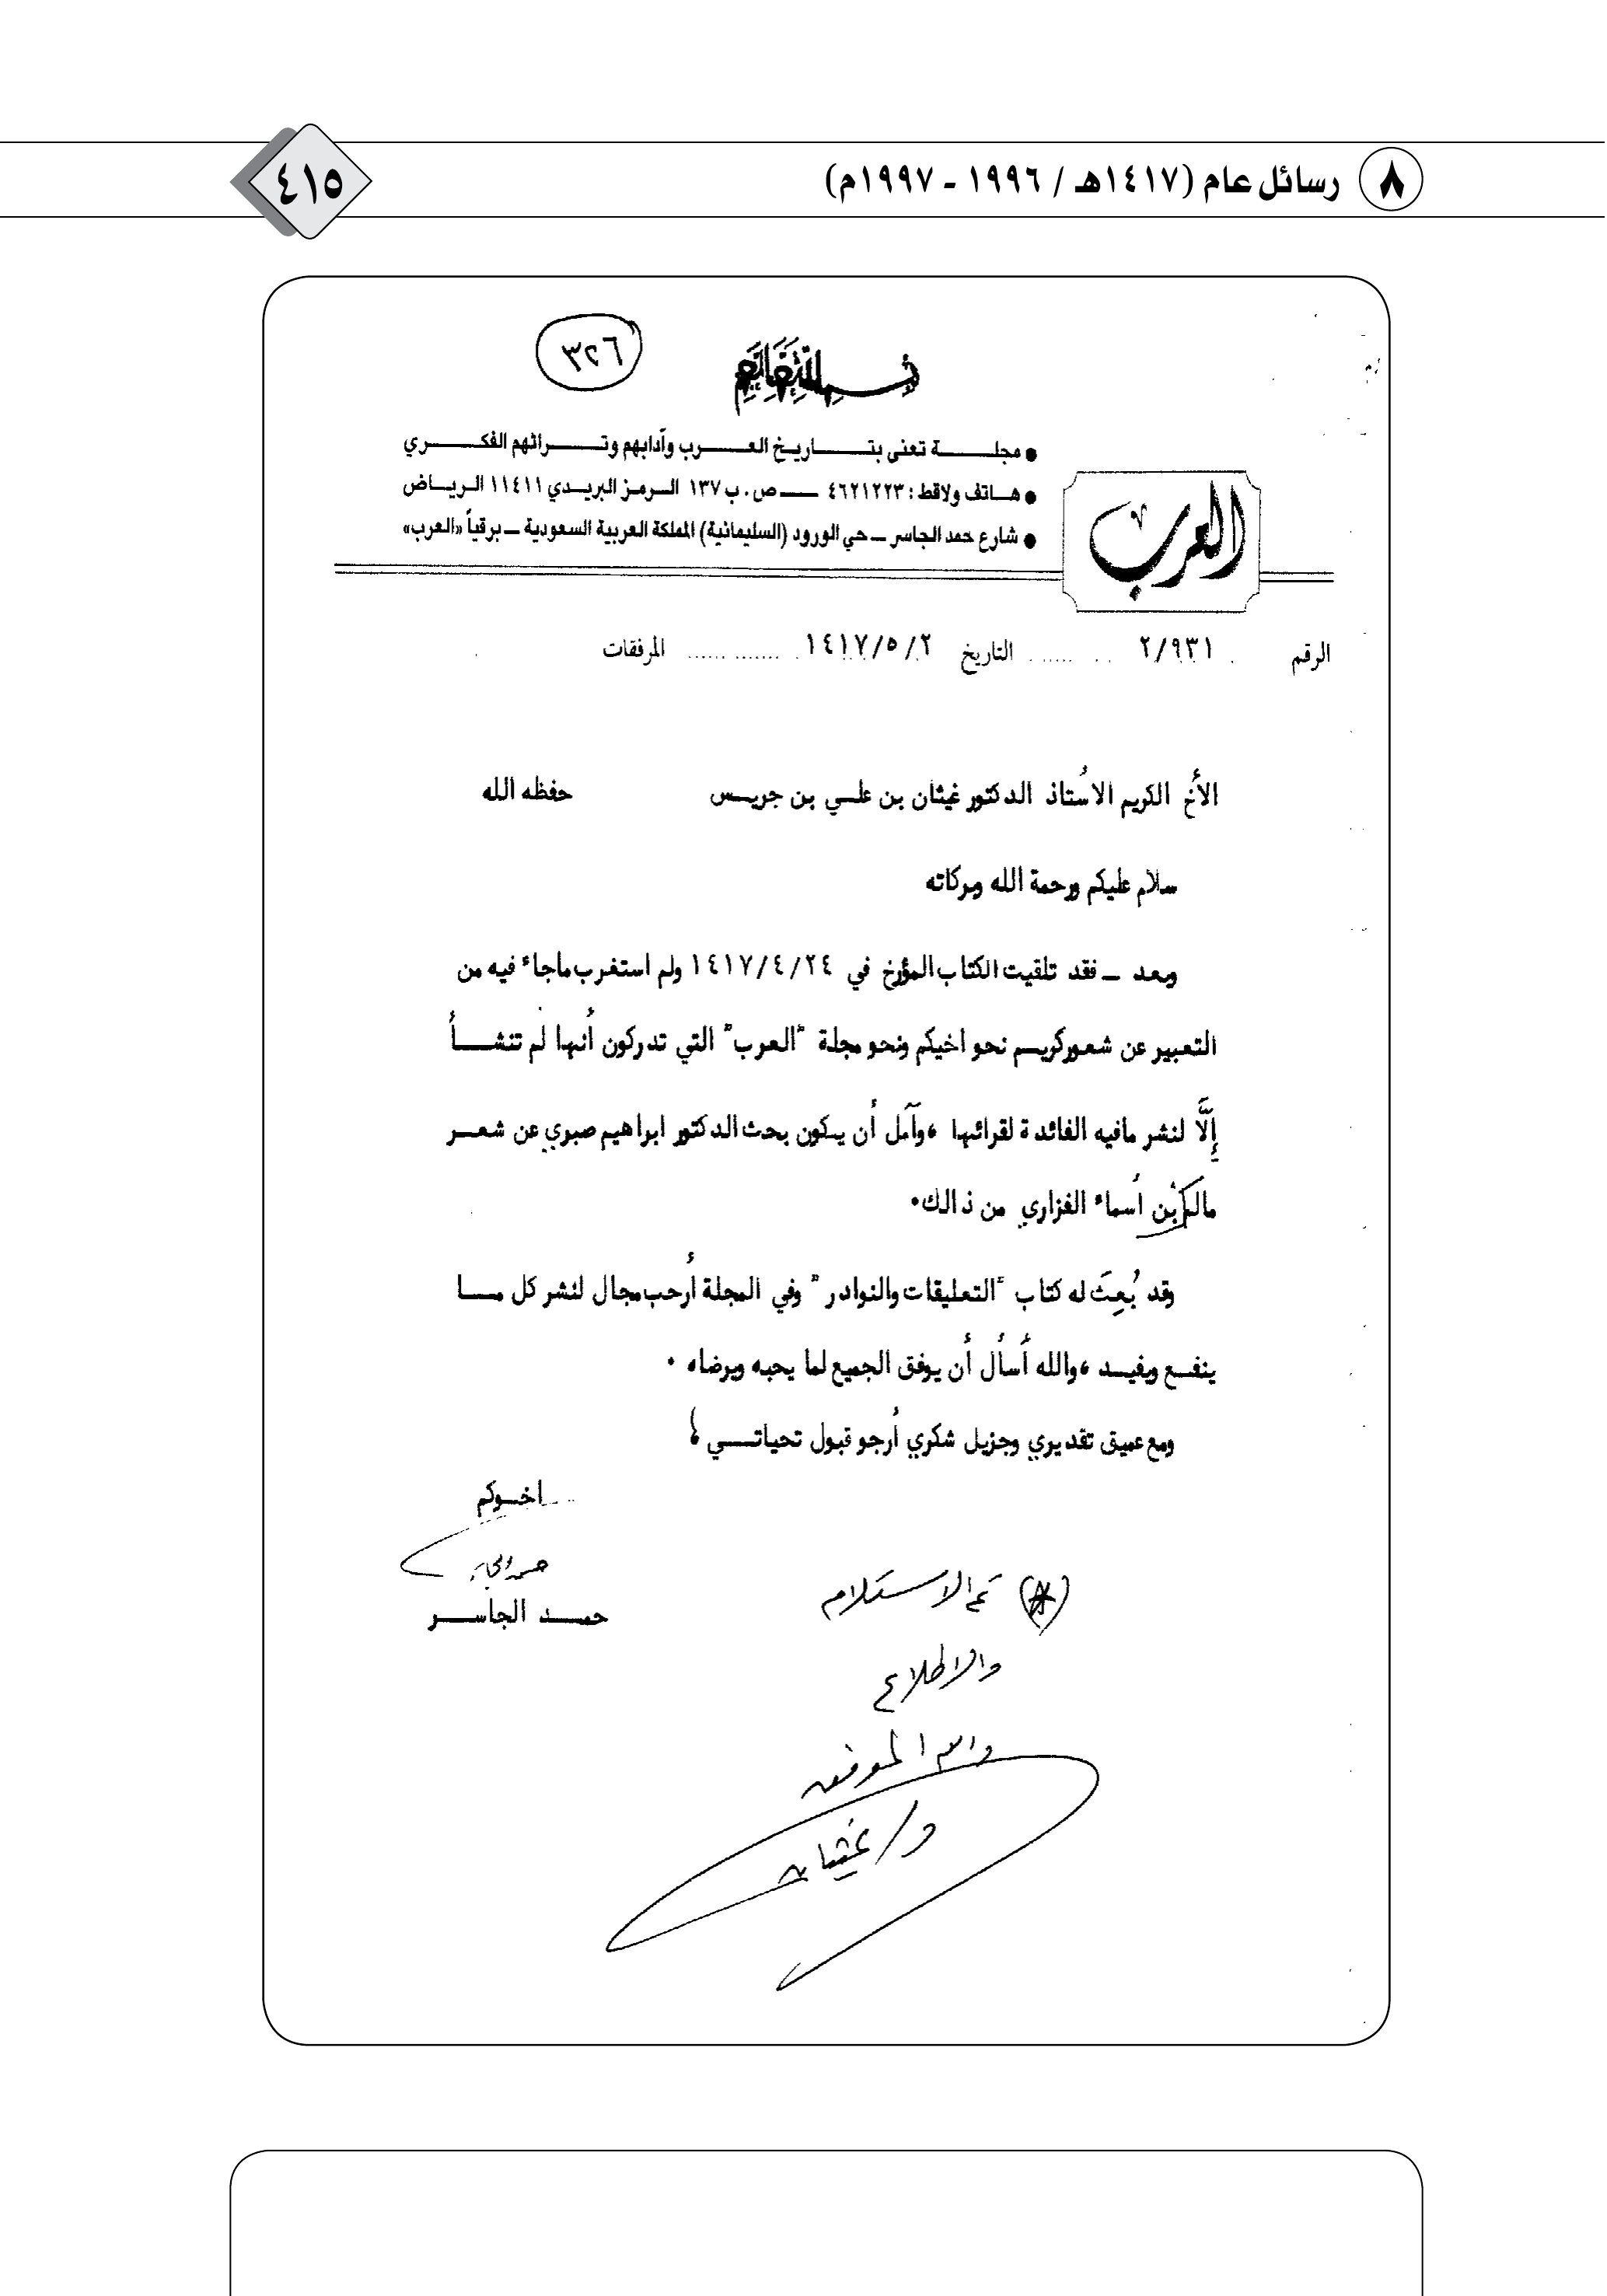 ٨ رسائل عام (١٤١٧هـ / ١٩٩٦ - ١٩٩٧م)
٤١٥
٣٢٦
• مجلــــة تعنى بتــــاريـخ العــــرب وآدابهم وتــــراثهم الفكــــري
• هــاتف ولاقط : ٤٦٢١٢٢٣ ـــ ص . ب ١٣٧ الـرمـز البريـدي ١١٤١١ الـريــاض
• شارع حمد الجاسر ـ حي الورود (السليمانية) المملكة العربية السعودية ـ برقياً «العرب»
العرب
الرقم ٢/٩٣١ التاريخ ١٤١٧/٥/٢ المرفقات
الأخ الكريم الأستاذ الدكتور غيثان بن علـي بن جريــس حفظه الله
سلام عليكم ورحمة الله وبركاته
وبعد ـ فقد تلقيت الكتاب المؤرخ في ١٤١٧/٤/٢٤ ولم استغرب ماجاء فيه من
التعبير عن شعور كريــم نحو اخيكم ونحو مجلة "العرب" التي تدركون أنها لم تنشــأ
إلَّا لنشر مافيه الفائدة لقرائها ، وآمل أن يكون بحث الدكتور ابراهيم صبري عن شعــر
مالك بن أسماء الفزاري من ذالك .
وقد بُعِثَ له كتاب "التعليقات والنوادر" وفي المجلة أرحب مجال لنشر كل مــا
ينفــع ويفيــد ، والله أسأل أن يوفق الجميع لما يحبه ويرضاه .
ومع عميق تقديري وجزيل شكري أرجو قبول تحياتــي ،
اخــوكم
حمــد الجاســر
تم الاستلام
والاطلاع
والله الموفق
د/ غيثان